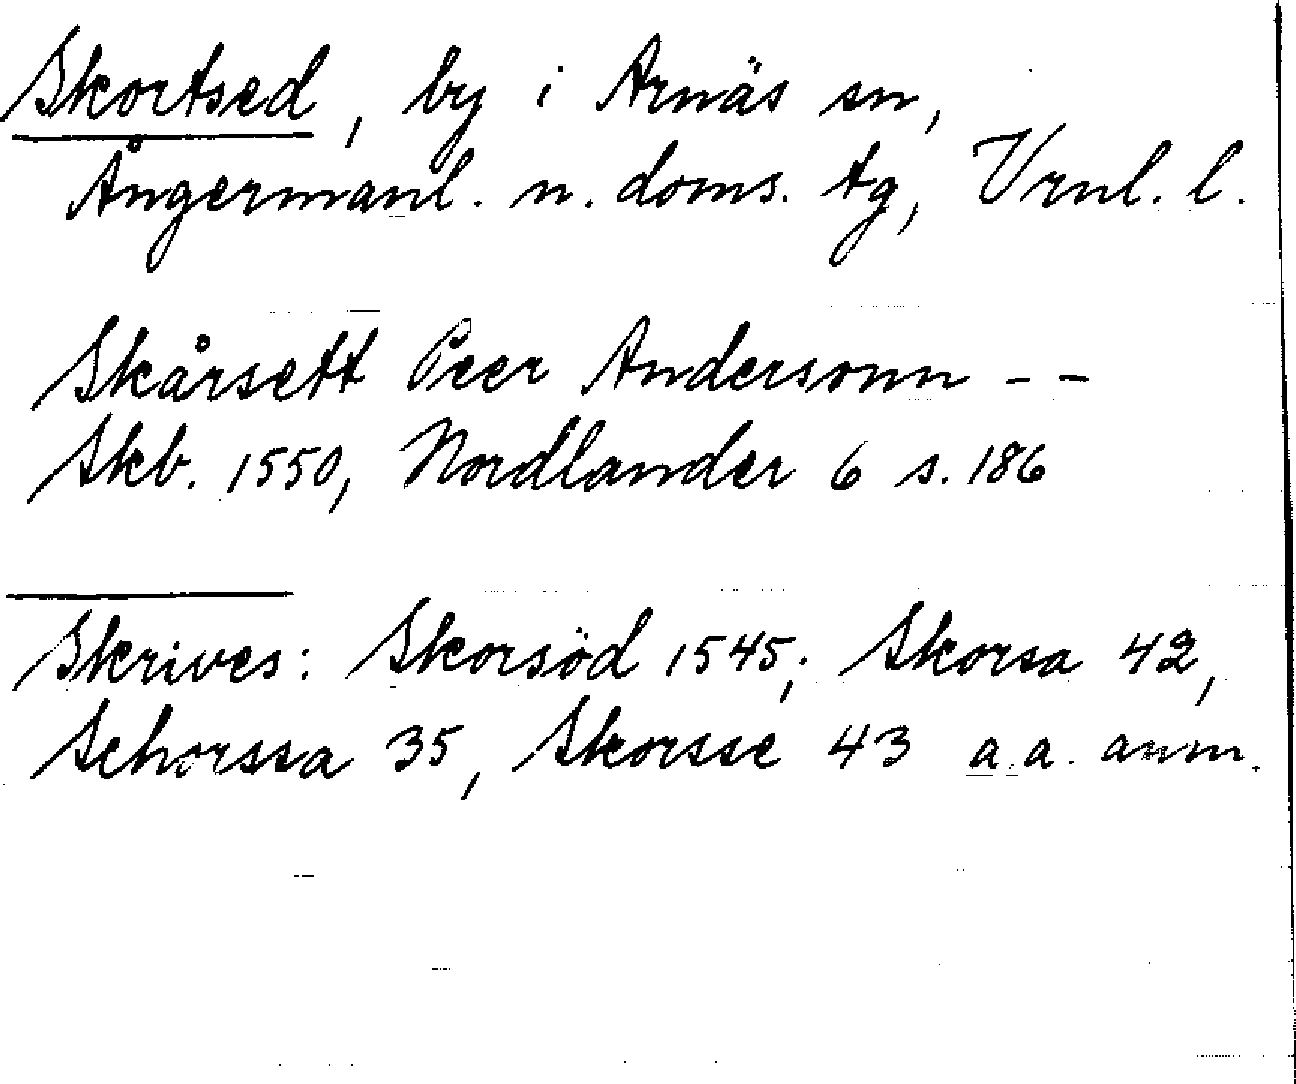 Skortsed, by i Arnäs sn,
Ångermanl. n. doms. tg, Vrnl. l.
Skårsett Peer Andersonn - -
Skb. 1550, Nordlander 6 s. 186
Skrives: Skorsöd 1545; Skorsa 42,
Schorssa 35, Skorsse 43 a.a. anm.